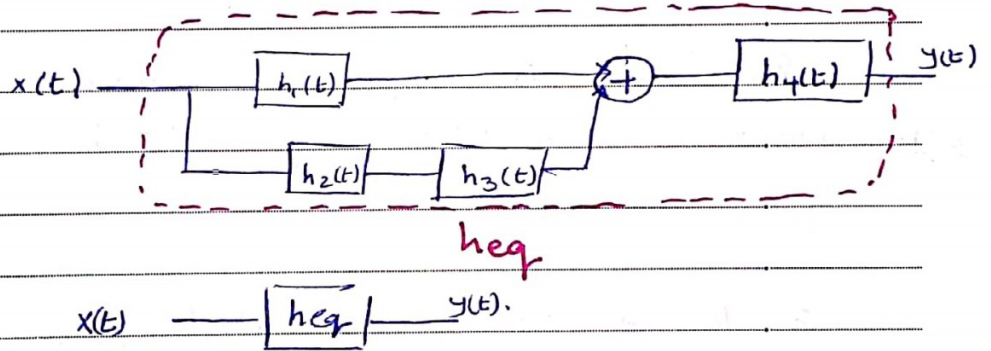 x(t) h₁(t) + h₄(t) y(t)
h₂(t) h₃(t)
heq
x(t) heq y(t).